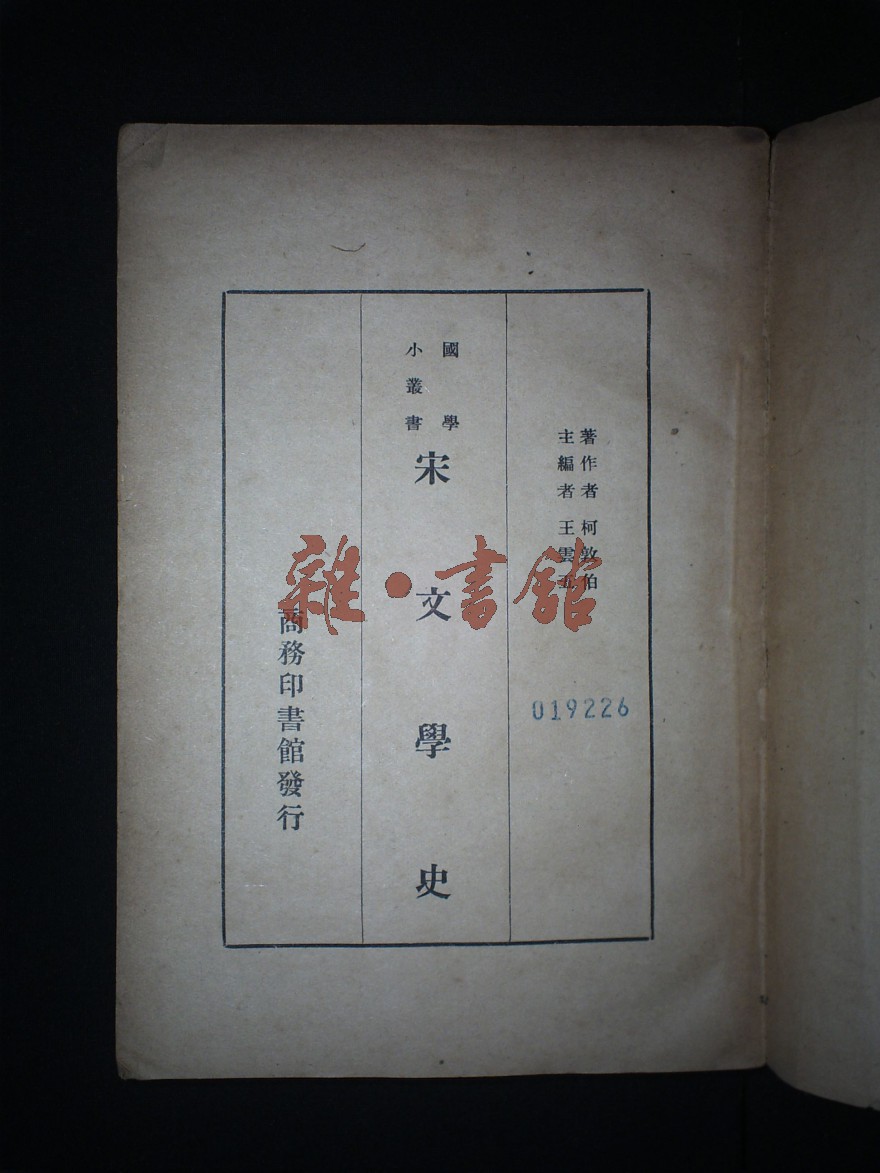 著作者 柯敦伯
主編者 王雲五
國學
小叢書
宋文學史
商務印書館發行
019226
雜·書館